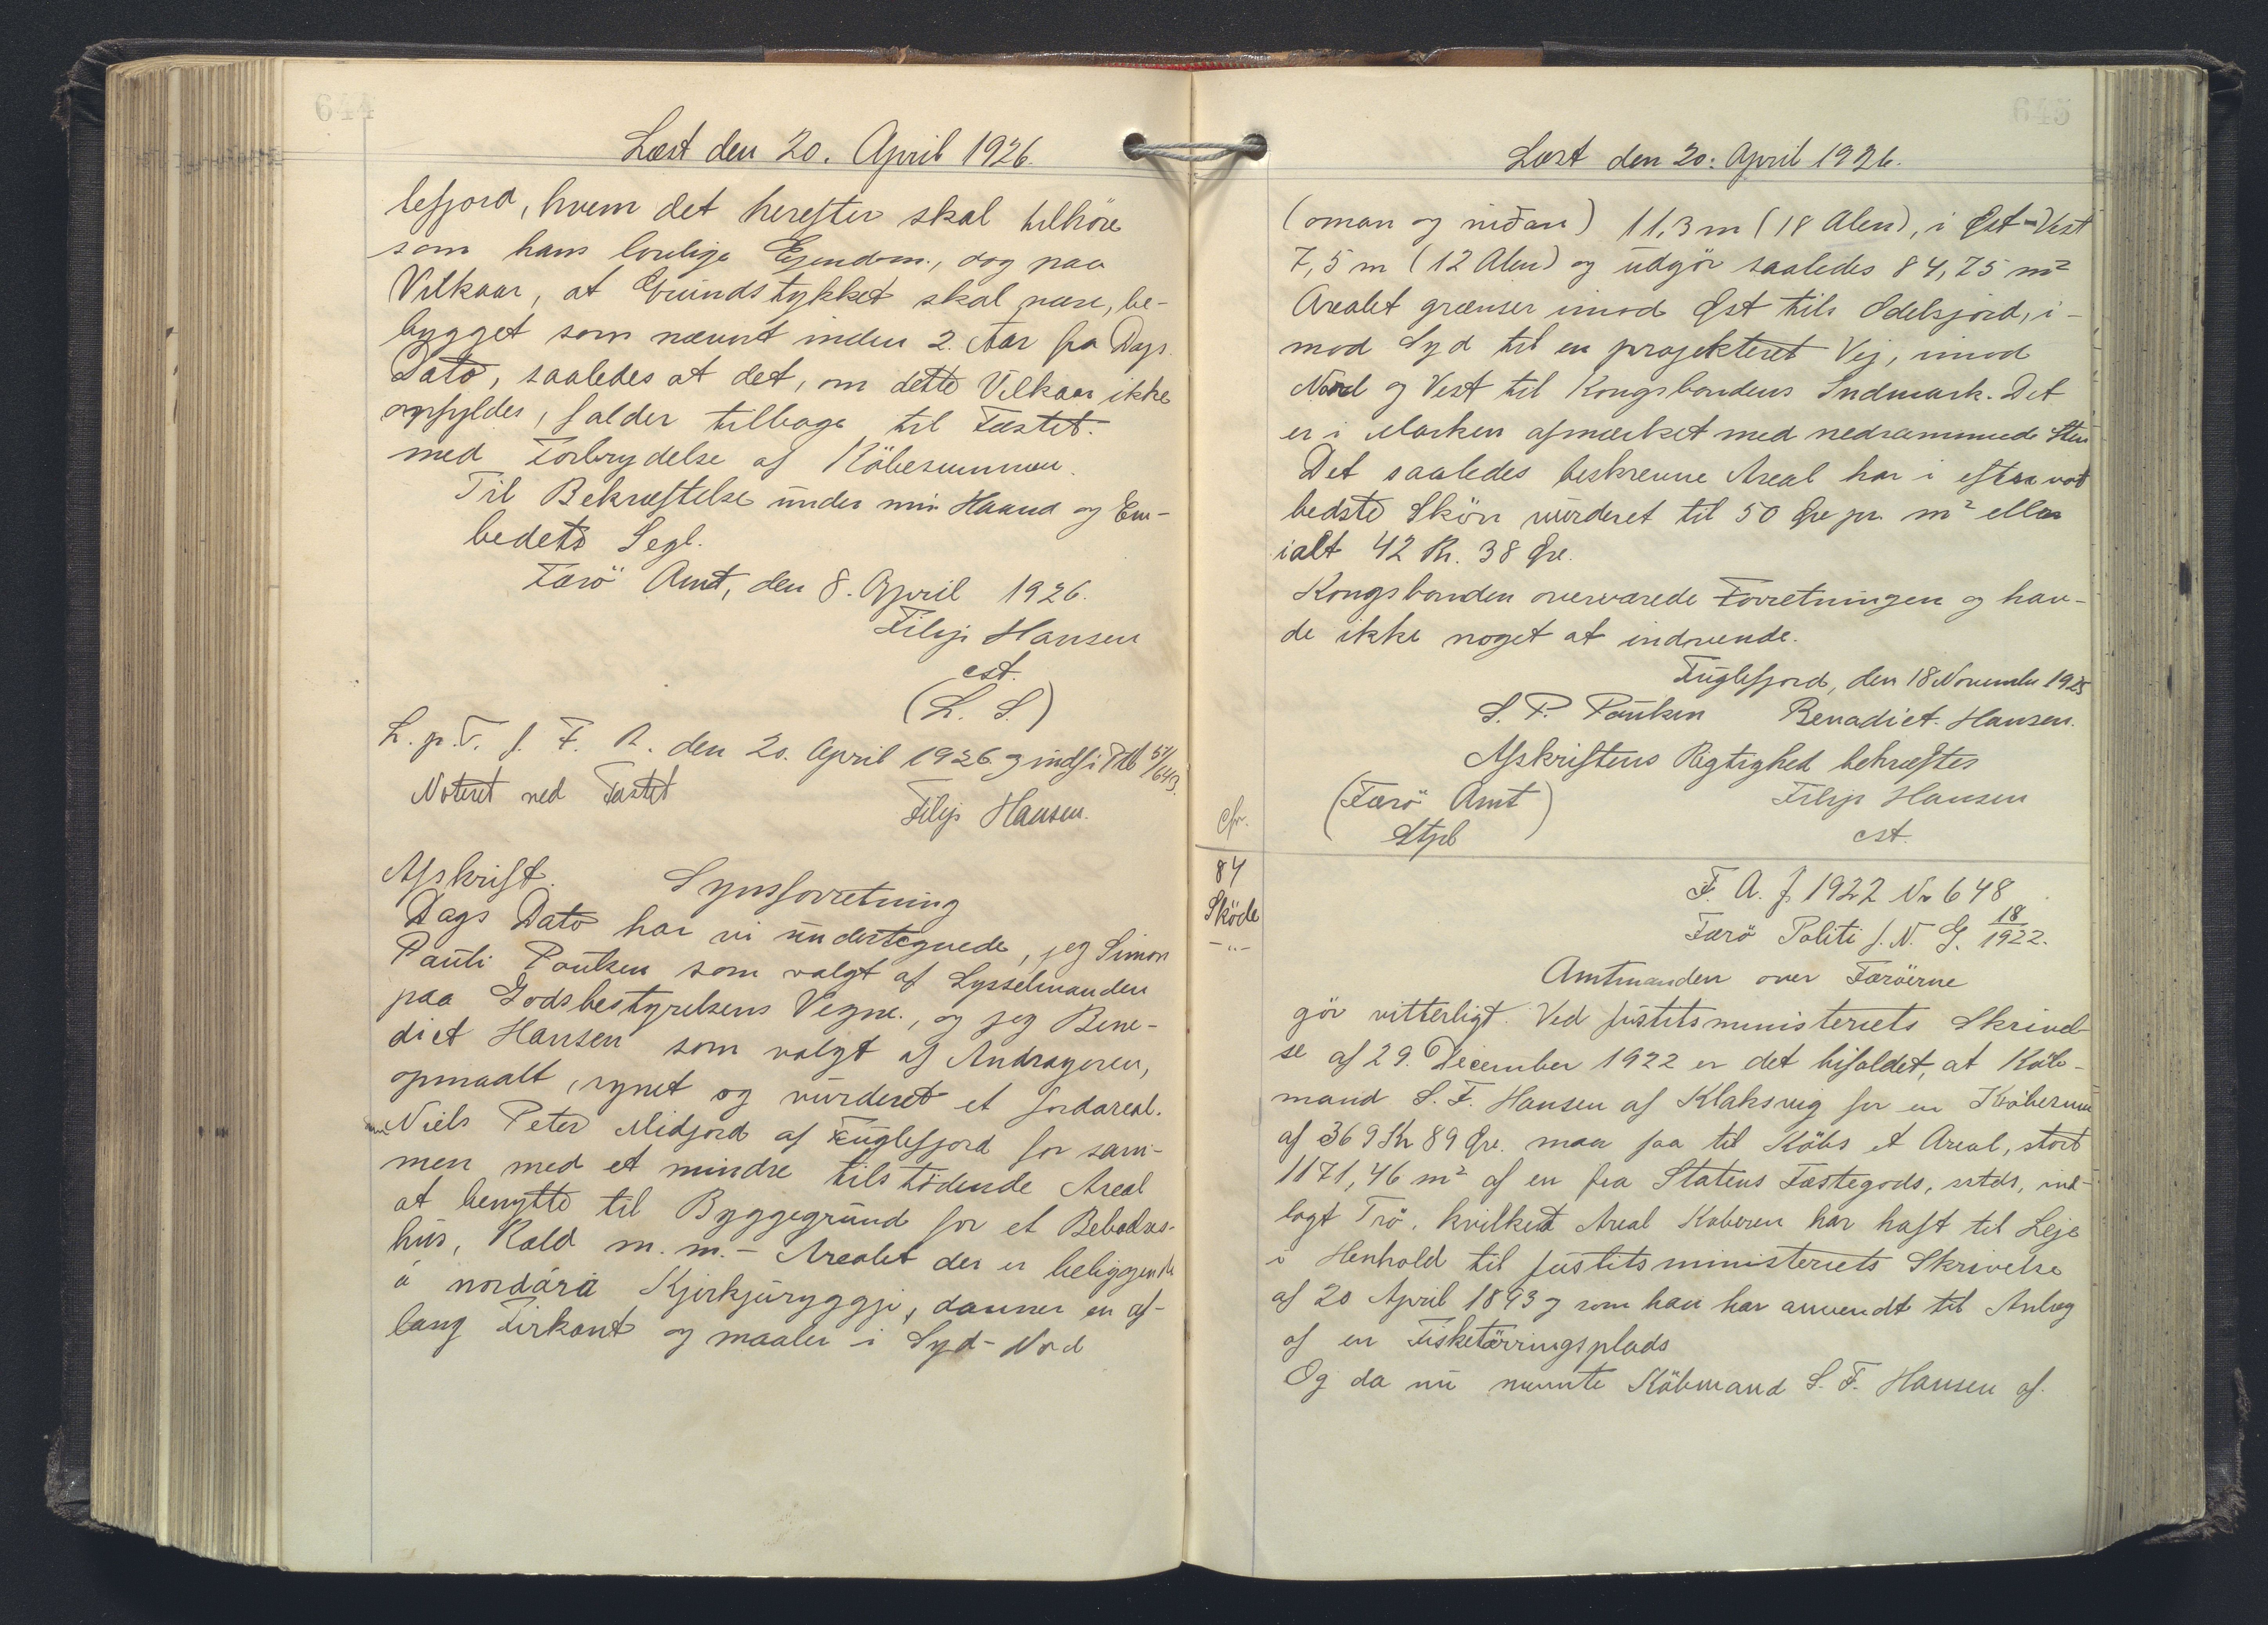 644
Læst den 20. April 1926.
lefjord, hvem det herefter skal tilhöre
som hans lovlige Ejendom., dog paa
Vilkaar, at Grundstykket skal være, be-
bygget som nævnt inden 2. Aar fra Dags
Dato, saaledes at det, om dette Vilkaar ikke
opfyldes, falder tilbage til Fæstet.
med Forbrydelse af Köbesummen.
Til Bekræftelse under min Haand og Em-
bedets Segl.
Færö Amt, den 8. April 1926.
Filip Hansen
cst.
(L. S.)
L. p. T. f. F. R. den 20. April 1926 og indf i Ptb 5/643.
Noteret ved Fæstet
Filip Hansen.
Afskrift. Synsforretning
Dags Dato har vi undertegnede, jeg Simon
Pauli Poulsen som valgt af Sysselmanden
paa Godsbestyrelsens Vegne., og jeg Bene-
dict Hansen som valgt af Andrageren,
opmaalt, synet og vurderet et Jordareal.
Niels Peter Midjord af Fuglefjord for sam-
men med et mindre tilstödende Areal
at benytte til Byggegrund for et Beboelses-
hus, Kald m. m. - Arealet der er beliggende
á nordára Kjirkjuryggji, danner en af-
lang Firkant og maaler i Syd-Nord
645
Læst den 20. April 1926.
(oman og niðan) 11,3 m (18 Alen), i Öst-Vest
7,5 m (12 Alen) og udgör saaledes 84,75 m²
Arealet grænser imod Öst til Odelsjord, i-
mod Syd til en projekteret Vej, imod
Nord og Vest til Kongsbondens Indmark. Det
er i Marken afmærket med nedrammede Sten
Det saaledes beskrevne Areal har vi efter vort
bedste Skön vurderet til 50 Öre pr. m² eller
ialt 42 Kr. 38 Öre.
Kongsbonden overværede Forretningen og hav-
de ikke noget at indvende.
Fuglefjord, den 18 November 1925
S. P. Poulsen Benadict. Hansen.
Afskriftens Rigtighed bekræftes
(Færö Amt) Filip Hansen
Stpl cst.
cfr.
84
Sköde
-"-
F. A. J. 1922 No 648
Færö Politi J. N. G. 18/1922.
Amtmanden over Færöerne
gör vitterligt. Ved Justitsministeriets Skrivel-
se af 29. December 1922 er det bifaldet, at Köb-
mand S. F. Hansen af Klaksvig for en Köbesum
af 369 Kr 89 Öre. maa faa til Köbs et Areal, stort
1171,46 m² af en fra Statens Fæstegods, sstds, ind-
lagt Trö, hvilket Areal Köberen har haft til Leje
i Henhold til Justitsministeriets Skrivelse
af 20 April 1893 og som han har anvendt til Anlæg
af en Fisketörringsplads
Og da nu nævnte Köbmand S. F. Hansen af